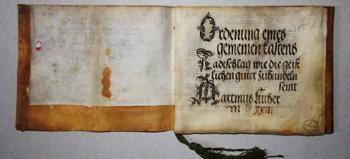 Ordenung eines
gemeinen castens
Radtschlag wie die geist
lichen guter zu handeln
seint
Martinus Luther
M D xxiii